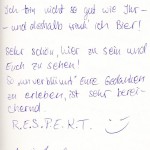 Ich bin nicht so gut wie Ihr -
- und deshalb trink' ich Bier!
Sehr schön, hier zu sein und
Euch zu sehen!
So "unverblümt" Eure Gedanken
zu erleben, ist sehr berei-
chernd.
R.E.S.P.E.K.T.